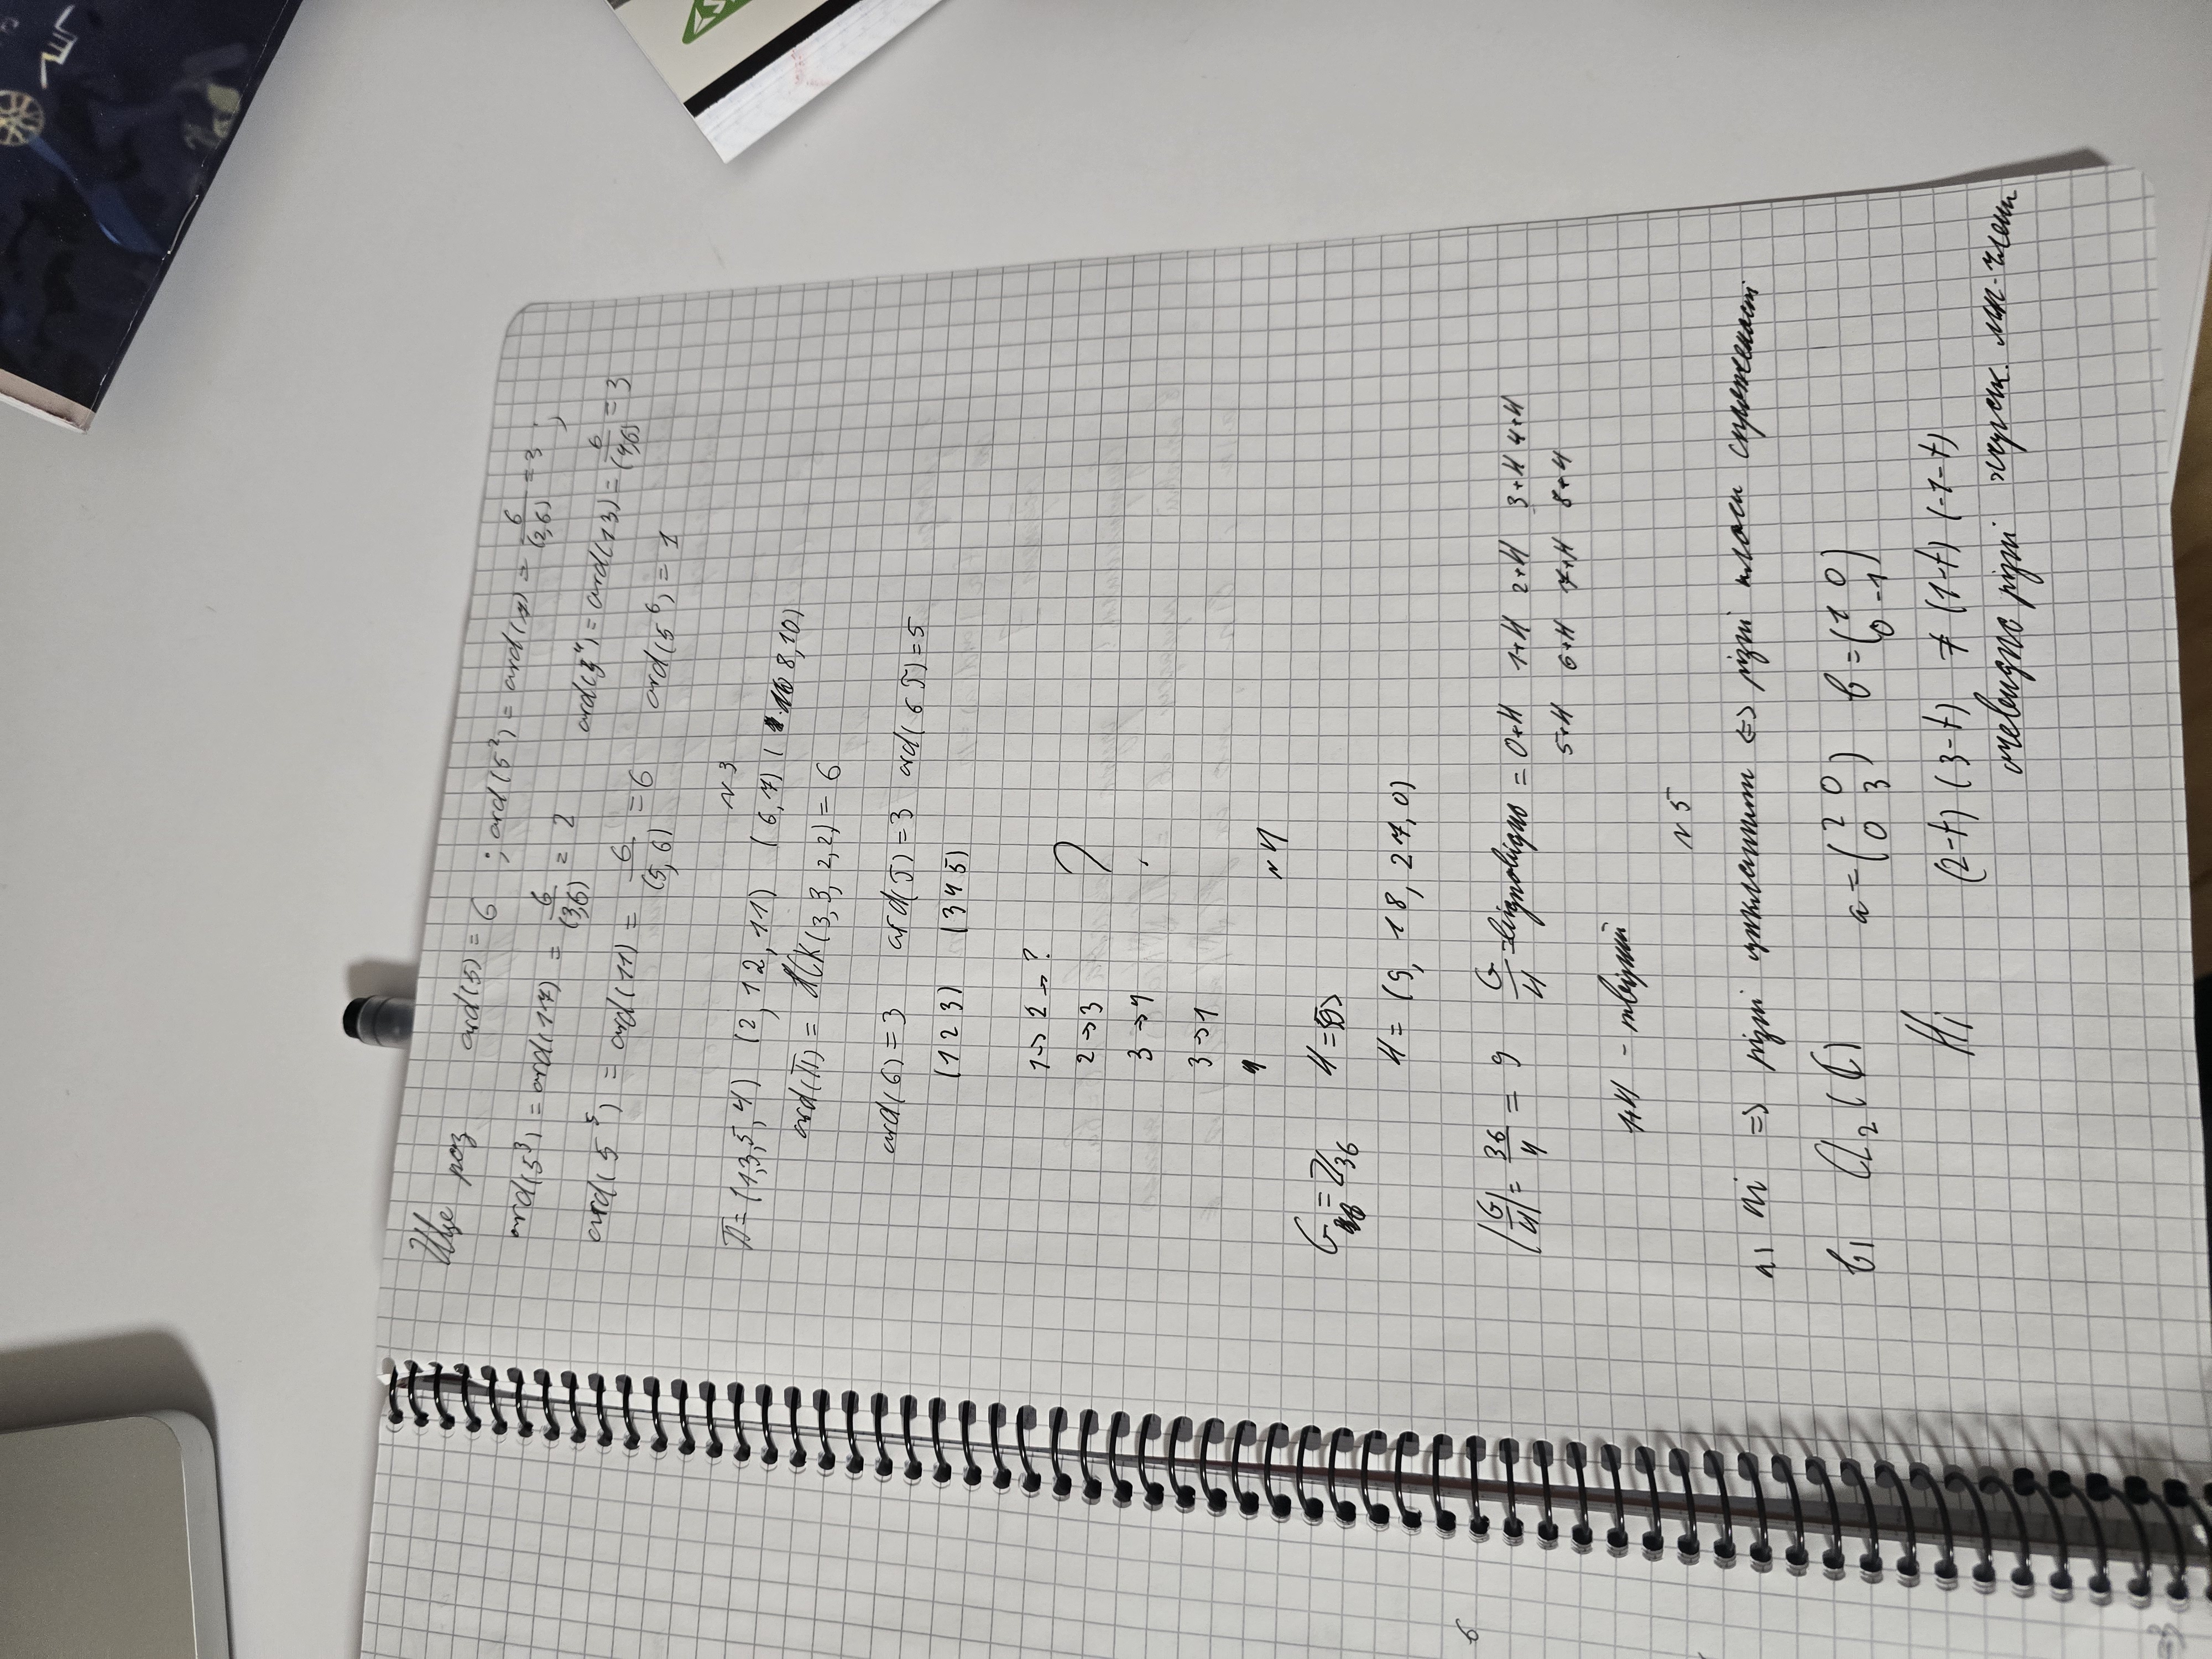 Ще раз ord(5) = 6 ; ord(5²) = ord(7) = 6/(2,6) = 3 ;
ord(5³) = ord(17) = 6/(3,6) = 2 ord(5⁴) = ord(13) = 6/(4,6) = 3
ord(5⁵) = ord(11) = 6/(5,6) = 6 ord(5⁶) = 1
N 3
π = (1,3,5,4) (2,12,11) (6,7) ( 8,10)
ord(π) = НСК(3,3,2,2) = 6
ord(б) = 3 ord(J) = 3 ord(б J) = 5
(1 2 3) (3 4 5)
1 → 2 → ?
2 → 3 ?
3 → 4
3 → 1
4
N 4
G = Z₃₆ H = <9>
H = (9, 18, 27, 0)
|G/H| = 36/4 = 9 G/H = відповідно = 0+H 1+H 2+H 3+H 4+H
5+H 6+H 7+H 8+H
1+H - твірний
N 5
а) ні => різні циклотипи <=> різні класи спряженості
б) GL₂(ℂ) a = (2 0 0 3) b = (1 0 0 -1)
Ні (2-t) (3-t) ≠ (1-t) (-1-t)
очевидно різні характ. мн-члени
6